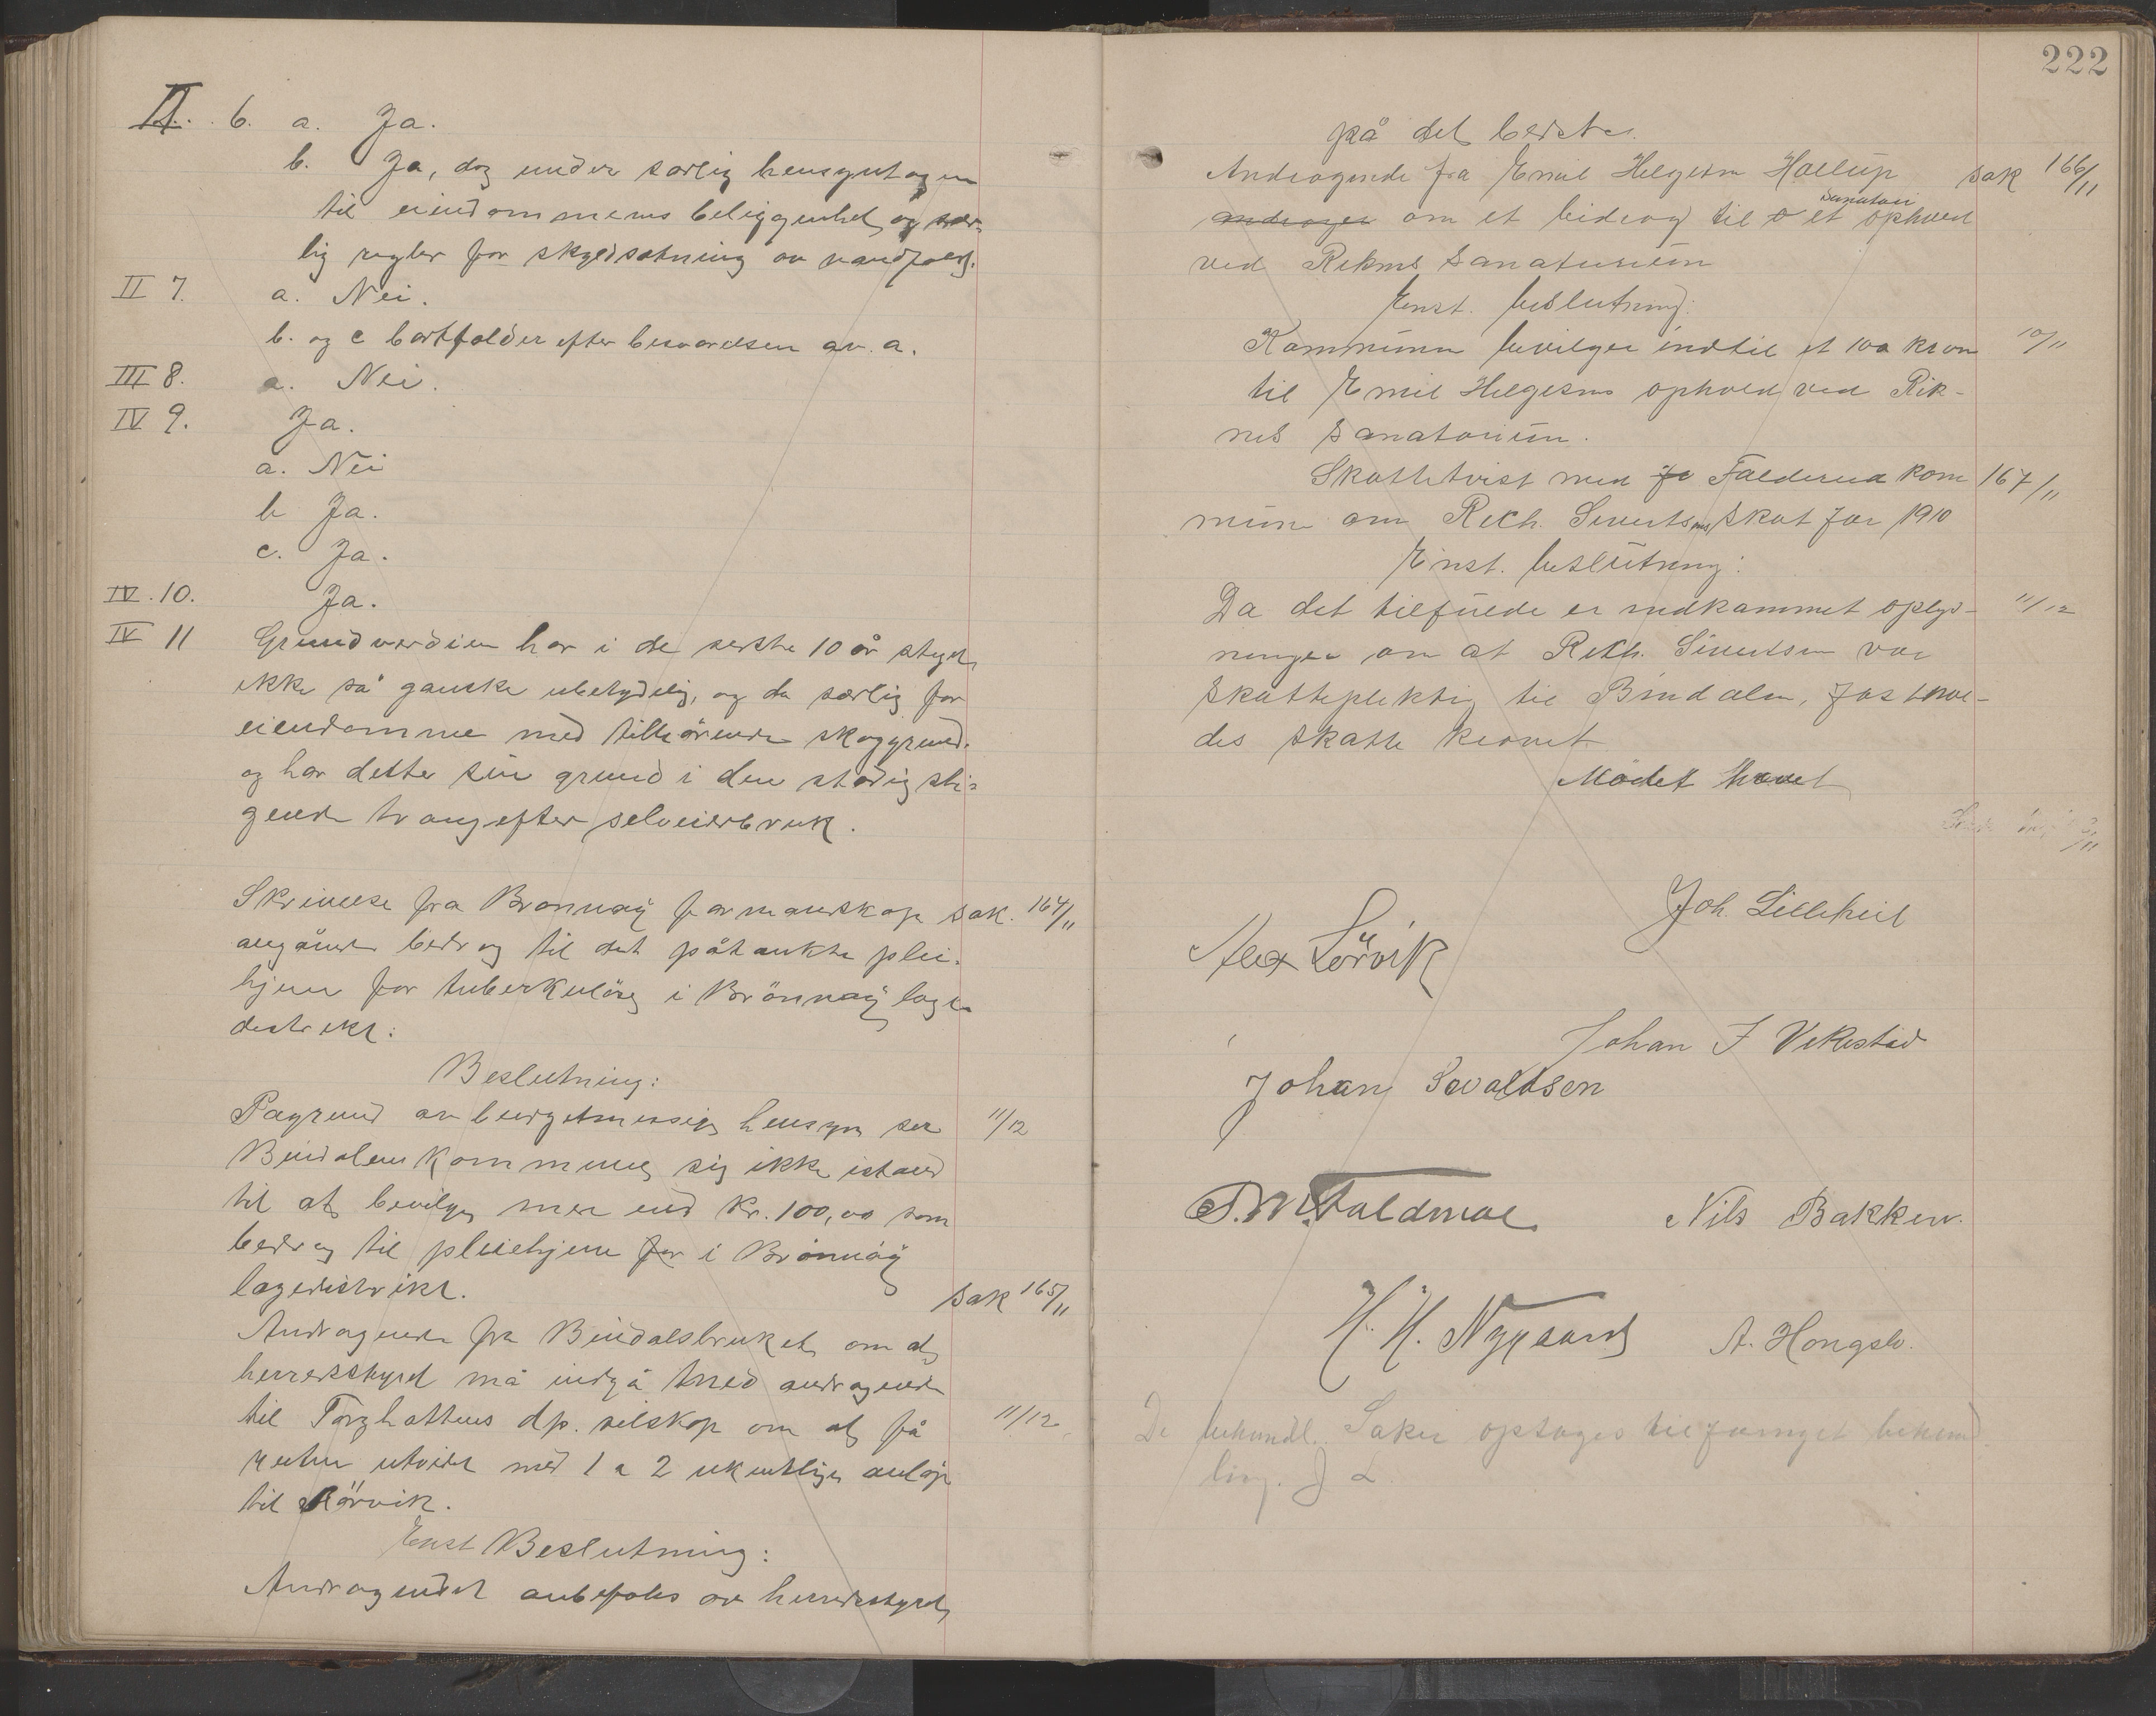 II. 6. a. Ja.
b. Ja, dog under særlig hensyntagen
til eiendommens beliggenhet og sær-
lig regler for skyldsætning av vandfald.
II 7. a. Nei.
b. og c bortfalder efter besvarelsen av a.
III 8. a. Nei.
IV 9. Ja.
a. Nei
b Ja.
c. Ja.
IV. 10. Ja.
IV 11 Grundværdien har i de serste 10 år steget
ikke så ganske ubetydelig, og da særlig for
eiendomme med tilhörende skoggrund.
og har dette sin grund i den stadig sti-
gende trang efter selveierbruk.
Skrivelse fra Brønnøy formandskap sak. 164/11
angående bidrag til det påtænkte plei-
hjem for tuberkuløse i Brönnöy læge
distrikt:
Beslutning:
Pågrund av budgetmessige hensyn ser 11/12
Bindalen kommune sig ikke istand
til at bevilge mer end kr. 100,00 som
bidrag til pleiehjem for i Brönnöy
lægedistrikt.
sak 165/11
Andragende fra Bindalsbruket om at
herredsstyret må indgå med andragende
til Torghattens dp. selskap om at få 11/12
ruten utvidet med 1 a 2 ukentlige anløp
til Rörvik.
Enst Beslutning:
Andragendet anbefales av herredsstyret
222
på det bedste.
Andragende fra Emil Helgesen Hallup sak 166/11
sanatori
andrager om et bidrag til et ophold
ved Reknes Sanatorium
Enst. beslutning:
Kommunen bevilger indtil et 100 kroner 10/11
til Emil Helgesens ophold ved Rek-
nes Sanatorium.
Skattetvist med Fo Foldereid kom 167/11
mune om Rich. Sivertsens skat for 1910
Enst. beslutning:
Da det tilfulde er indkommet oplys- 11/12
ninger om at Rich. Sivertsen var
skattepliktig til Bindalen, fasthol-
des skatte kravet.
Mödet hævet
Joh. Lillekeil
Alex Lörvik
Johan J Vikestad
Johan Sevaldsen
Nils Bakken.
H. H. Nygaard A. Hongslo.
De behandl. Saker optages til fornyet behand
ling.